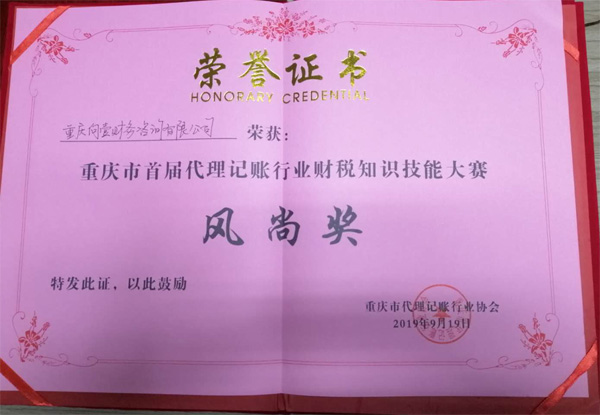 荣誉证书
HONORARY CREDENTIAL
重庆向壹财务咨询有限公司 荣获:
重庆市首届代理记账行业财税知识技能大赛
风尚奖
特发此证,以此鼓励
重庆市代理记账行业协会
2019年9月19日